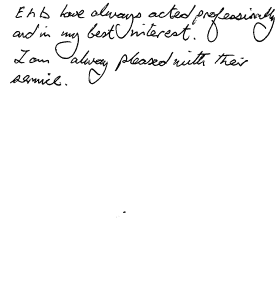 have always acted professionally
and in my best interest.
I am always pleased with their
service.